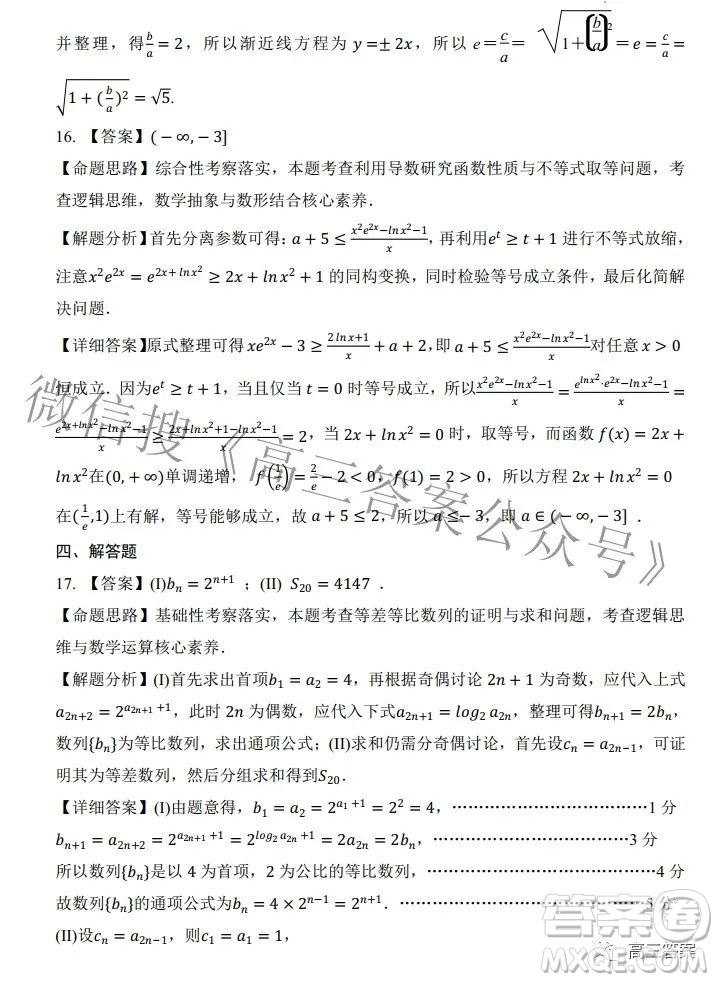 并整理，得b/a=2，所以渐近线方程为 y=±2x，所以 e=c/a= √(1+(b/a)²)=e=c/a=
√(1+(b/a)²)=√5.
16. 【答案】(−∞,−3]
【命题思路】综合性考察落实，本题考查利用导数研究函数性质与不等式取等问题，考
查逻辑思维，数学抽象与数形结合核心素养．
【解题分析】首先分离参数可得：a+5≤(x²e^{2x}−lnx²−1)/x，再利用e^t≥t+1 进行不等式放缩，
注意x²e^{2x}=e^{2x+lnx²}≥2x+lnx²+1 的同构变换，同时检验等号成立条件，最后化简解
决问题．
【详细答案】原式整理可得xe^{2x}−3≥(2lnx+1)/x+a+2，即 a+5≤(x²e^{2x}−lnx²−1)/x对任意 x>0
恒成立．因为e^t≥t+1，当且仅当 t=0 时等号成立，所以(x²e^{2x}−lnx²−1)/x=(e^{lnx²}·e^{2x}−lnx²−1)/x=
(e^{2x+lnx²}−lnx²−1)/x≥(2x+lnx²+1−lnx²−1)/x=2，当 2x+lnx²=0 时，取等号，而函数 f(x)=2x+
lnx²在(0,+∞)单调递增， f(1/e)=2/e−2<0，f(1)=2>0，所以方程 2x+lnx²=0
在(1/e,1)上有解，等号能够成立，故 a+5≤2，所以 a≤−3，即 a∈(−∞,−3] ．
四、解答题
17. 【答案】(I)bₙ=2^{n+1} ；(II) S₂₀=4147 ．
【命题思路】基础性考察落实，本题考查等差等比数列的证明与求和问题，考查逻辑思
维与数学运算核心素养．
【解题分析】(I)首先求出首项b₁=a₂=4，再根据奇偶讨论 2n+1 为奇数，应代入上式
a_{2n+2}=2^{a_{2n+1}+1}，此时 2n 为偶数，应代入下式a_{2n+1}=log₂a_{2n}，整理可得b_{n+1}=2bₙ，
数列{bₙ}为等比数列，求出通项公式；(II)求和仍需分奇偶讨论，首先设cₙ=a_{2n−1}，可证
明其为等差数列，然后分组求和得到S₂₀．
【详细答案】(I)由题意得，b₁=a₂=2^{a₁+1}=2²=4，………………………………1 分
b_{n+1}=a_{2n+2}=2^{a_{2n+1}+1}=2^{log₂a_{2n}+1}=2a_{2n}=2bₙ，………………………………3 分
所以数列{bₙ}是以 4 为首项，2 为公比的等比数列，………………………………4 分
故数列{bₙ}的通项公式为 bₙ=4×2^{n−1}=2^{n+1}．………………………………5 分
(II)设cₙ=a_{2n−1}，则c₁=a₁=1，
微信搜《高三答案公众号》
高三答案
答案圈
MXQE.COM